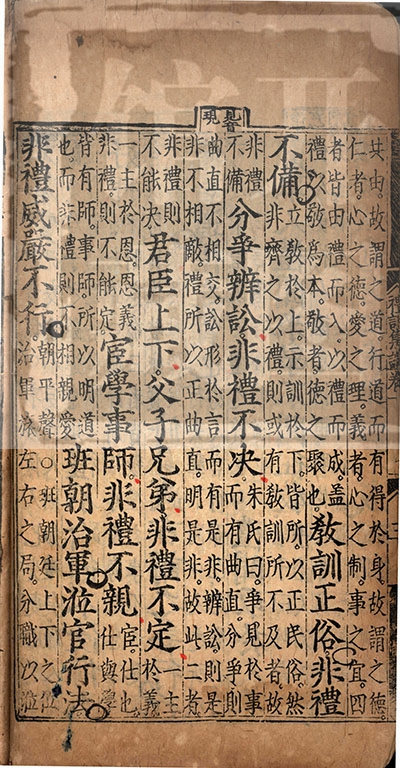 其由故謂之道。行道而有得於身。故謂之德。
仁者。心之德。愛之理。義者。心之制。事之宜。四
者皆由禮而入。以禮而成。蓋
禮以敬爲本。敬者德之聚也。
教訓正俗非禮
不備
立敎於上。示訓於下。皆所以正民俗。然
非齊之以禮。則或有敎訓所不及者。故
非禮
不備
分爭辨訟非禮不决
朱氏曰。爭見於事
而有曲直。分爭則
曲直不相交。訟形於言而有是非。辨訟則是
非不相敵。禮所以正曲直。明是非。故此二者
非禮則
不能决
君臣上下父子兄弟非禮不定
一主
於義
一主於恩。恩義
非禮則不能定
宦學事師非禮不親
宦仕也
仕與學
皆有師。事師所以明道
也。而非禮則不相親愛
班朝治軍涖官行法
非禮威嚴不行
朝平聲○班朝廷上下之位
治軍旅左右之局。分職以涖